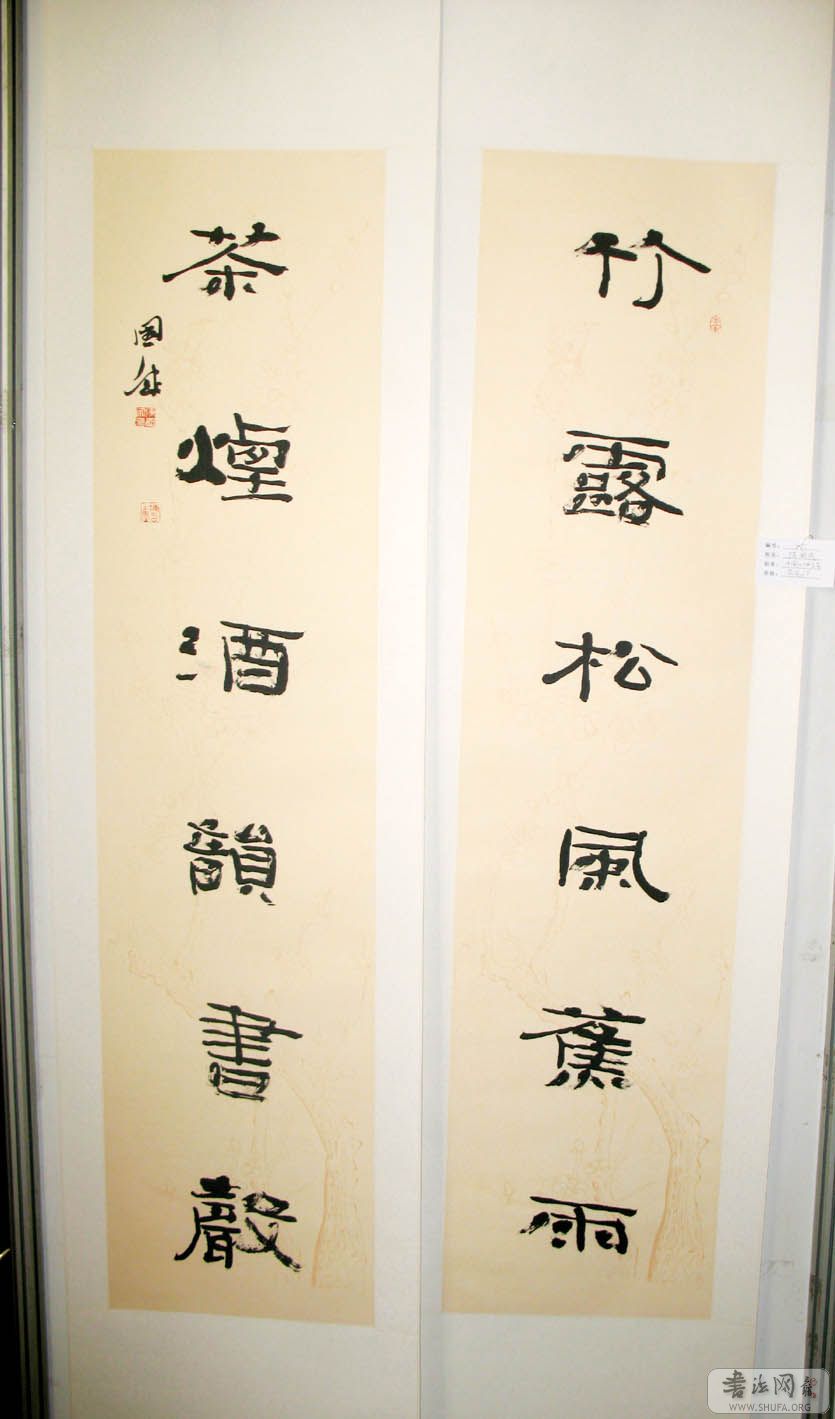 竹露松風蕉雨
茶煙酒韻書聲
國成
書法网
WWW.SHUFA.ORG